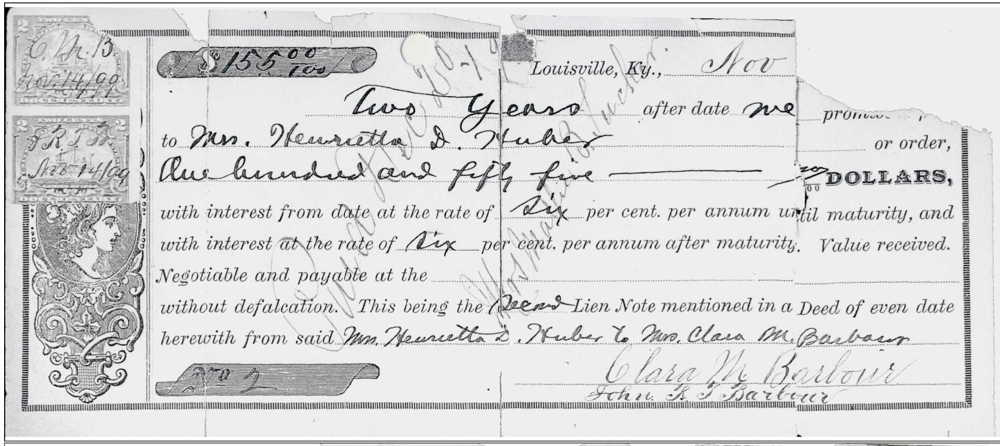 2 2
C. M. B.
Nov. 14/99
2 2
J K T B
Nov 14/99
$155 00/100
Louisville, Ky., Nov
Two Years after date we promise
to Mrs. Henrietta D. Huber or order,
One hundred and fifty five — no/00 DOLLARS,
with interest from date at the rate of six per cent. per annum until maturity, and
with interest at the rate of six per cent. per annum after maturity. Value received.
Negotiable and payable at the
without defalcation. This being the second Lien Note mentioned in a Deed of even date
herewith from said Mrs. Henrietta D. Huber to Mrs. Clara M. Barbour
No 2
Clara M Barbour
John K T Barbour